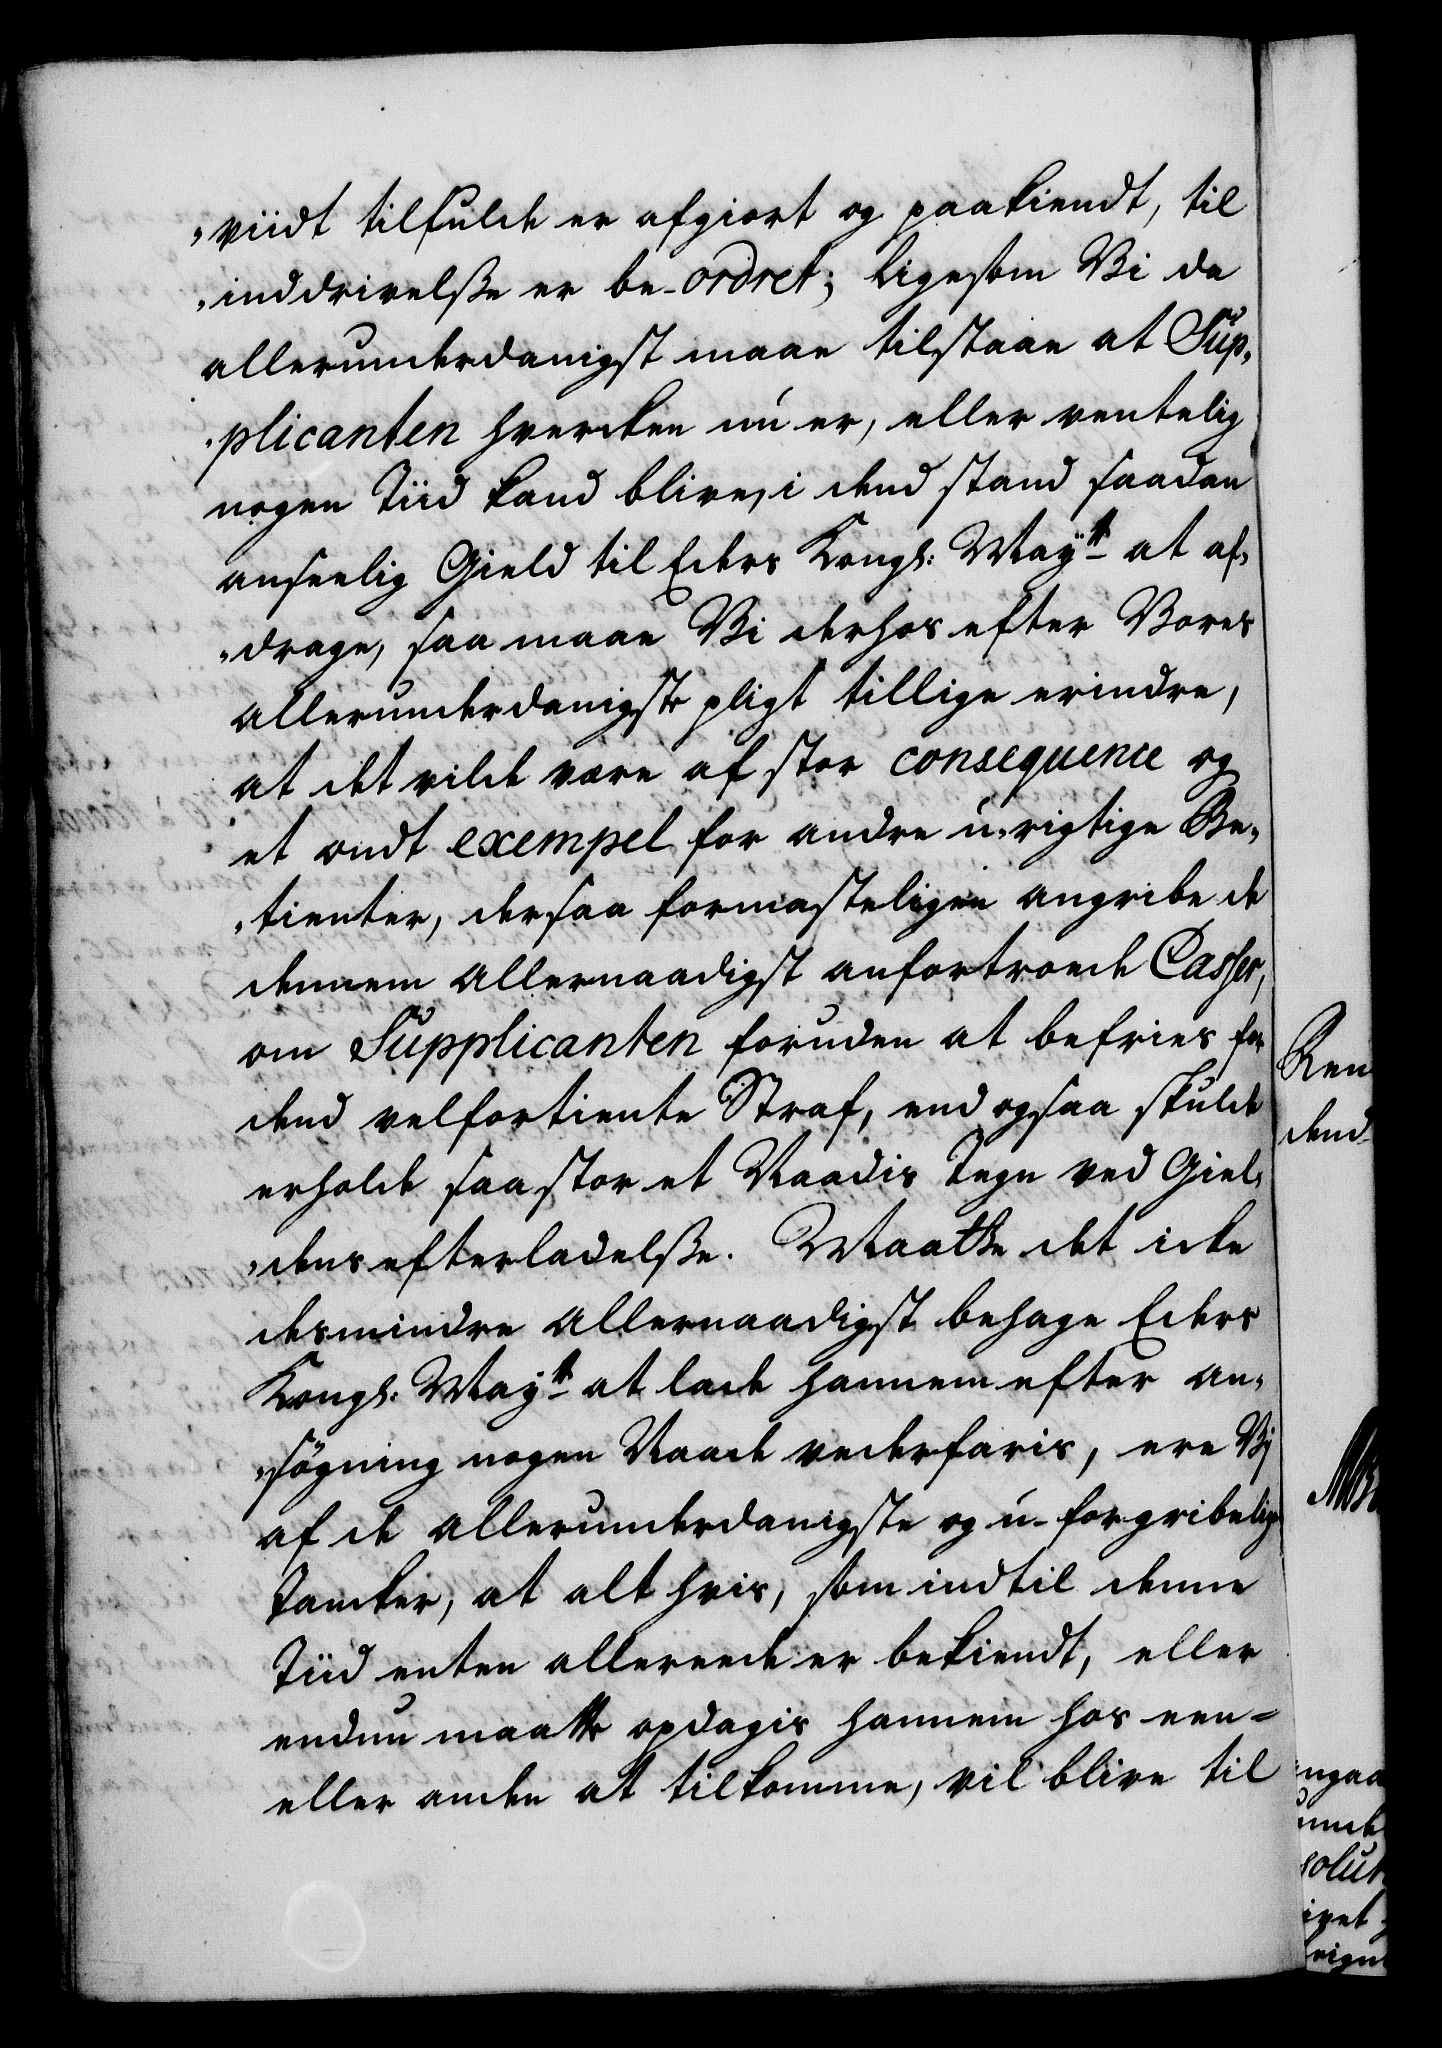 „viidt tilfulde er afgiort og paakiendt, til
„inddrivelsße er be-ordret; ligesom Vi da
allerunderdanigst maae tilstaae at Sup„
„plicanten hvercken nu er, eller ventelig
nogen Tiid kand blive, i dend stand saadan
anseelig Gield til Eders Kongl: Mayᵗᵗ at af„
„drage, saa maae Vi derhos efter Vores
allerunderdanigste pligt tillige erindre,
at det vilde være af stor consequence og
et ondt exempel for andre u-rigtige Be„
„tienter, der saa formasteligen angribe de
dennem allernaadigst anfortroede Casser,
om Supplicanten foruden at befries for
dend velfortiente Straf, end ogsaa skulde
erholde saa stor et Naadis Tegn ved Giel„
„dens efterladelsße. Maatte det icke
desmindre allernaadigst behage Eders
Kongl: Mayᵗᵗ at lade hannem efter an„
„søgning nogen Naade vederfaris, ere Vj
af de allerunderdanigste og u-forgribelige
Tancker, at alt hvis, som indtil denne
Tiid enten allereede er bekiendt, eller
endnu maatte opdagis hannem hos een-
eller anden at tilkomme, vil blive til
Ren
dend
ngaa
solut